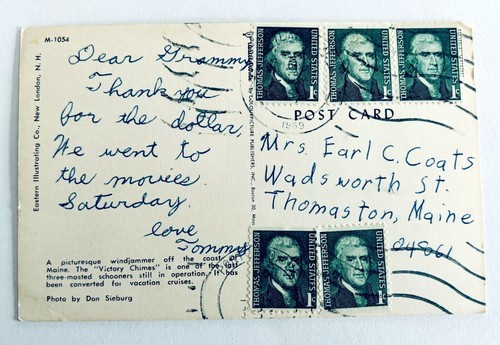 M-1054
Dear Grammy
Thank you
for the dollar,
We went to
the movies.
Saturday.
love
Tommy
A picturesque windjammer off the coast of
Maine. The "Victory Chimes" is one of the last
three-masted schooners still in operation. It has
been converted for vacation cruises.
Photo by Don Sieburg
Eastern Illustrating Co., New London, N. H.
THOMAS JEFFERSON
UNITED STATES
1c
THOMAS JEFFERSON
UNITED STATES
1c
THOMAS JEFFERSON
UNITED STATES
1c
1969
POST CARD
Mrs. Earl C. Coats
Wadsworth St.
Thomaston, Maine
THOMAS JEFFERSON
UNITED STATES
1c
THOMAS JEFFERSON
UNITED STATES
1c